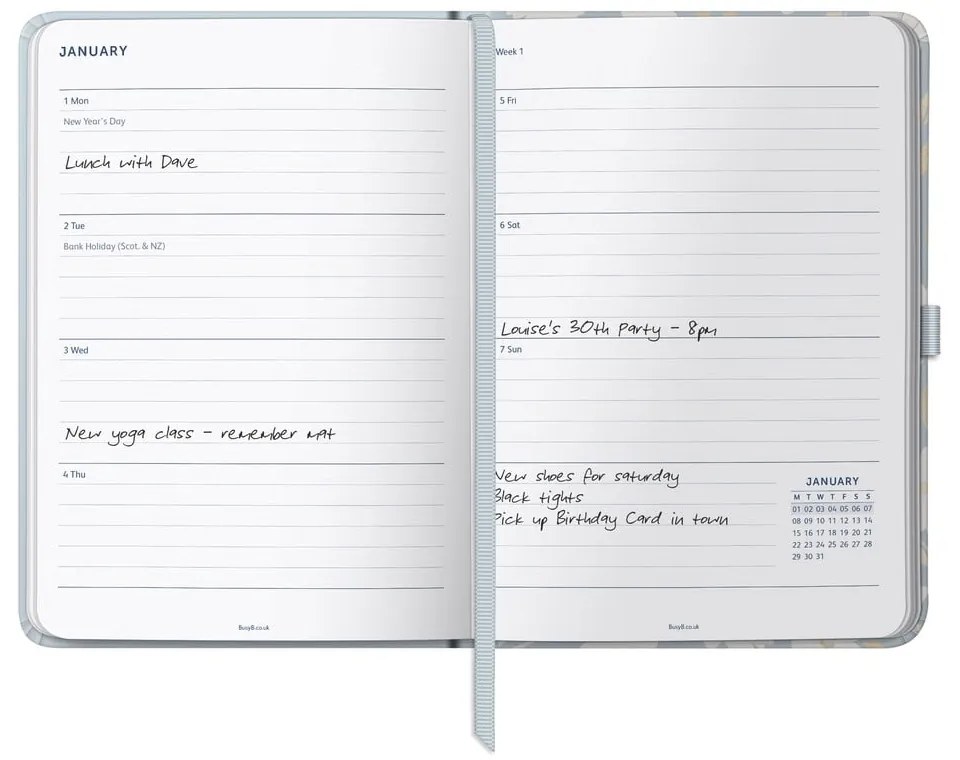 JANUARY
1 Mon
New Year's Day
Lunch with Dave
2 Tue
Bank Holiday (Scot. & NZ)
3 Wed
New yoga class - remember mat
4 Thu
BusyB.co.uk
Week 1
5 Fri
6 Sat
Louise's 30th Party - 8pm
7 Sun
New shoes for saturday
Black tights
Pick up Birthday Card in town
JANUARY
M T W T F S S
01 02 03 04 05 06 07
08 09 10 11 12 13 14
15 16 17 18 19 20 21
22 23 24 25 26 27 28
29 30 31
BusyB.co.uk